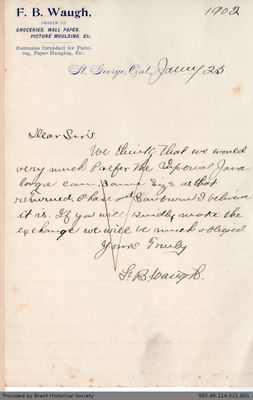 F. B. Waugh,
DEALER IN
GROCERIES, WALL PAPER,
PICTURE MOULDING, Etc.
Estimates furnished for Paint-
ing, Paper Hanging, Etc.
1902
St. George, Ont., Jany 25
Dear Sirs
We think that we would
very much prefer the Imperial Java
large can, same size as that
returned. I have
it is. If you will kindly make the
exchange we will be much obliged
Yours Truly
F. B. Waugh.
Provided by Brant Historical Society
985.86.114.015.001